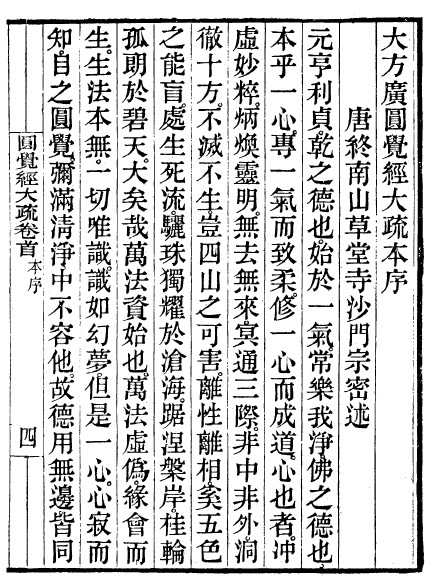 大方廣圓覺經大疏本序
唐終南山草堂寺沙門宗密述
元亨利貞。乾之德也。始於一氣。常樂我淨。佛之德也。
本乎一心。專一氣而致柔。修一心而成道。心也者。冲
虛妙粹。炳煥靈明。無去無來。冥通三際。非中非外。洞
徹十方。不滅不生。豈四山之可害。離性離相。奚五色
之能盲。處生死流。驪珠獨耀於滄海。踞涅槃岸。桂輪
孤朗於碧天。大矣哉。萬法資始也。萬法虛僞。緣會而
生。生法本無。一切唯識。識如幻夢。但是一心。心寂而
知。自之圓覺。彌滿清淨。中不容他。故德用無邊。皆同
圓覺經大疏卷首 本序
四